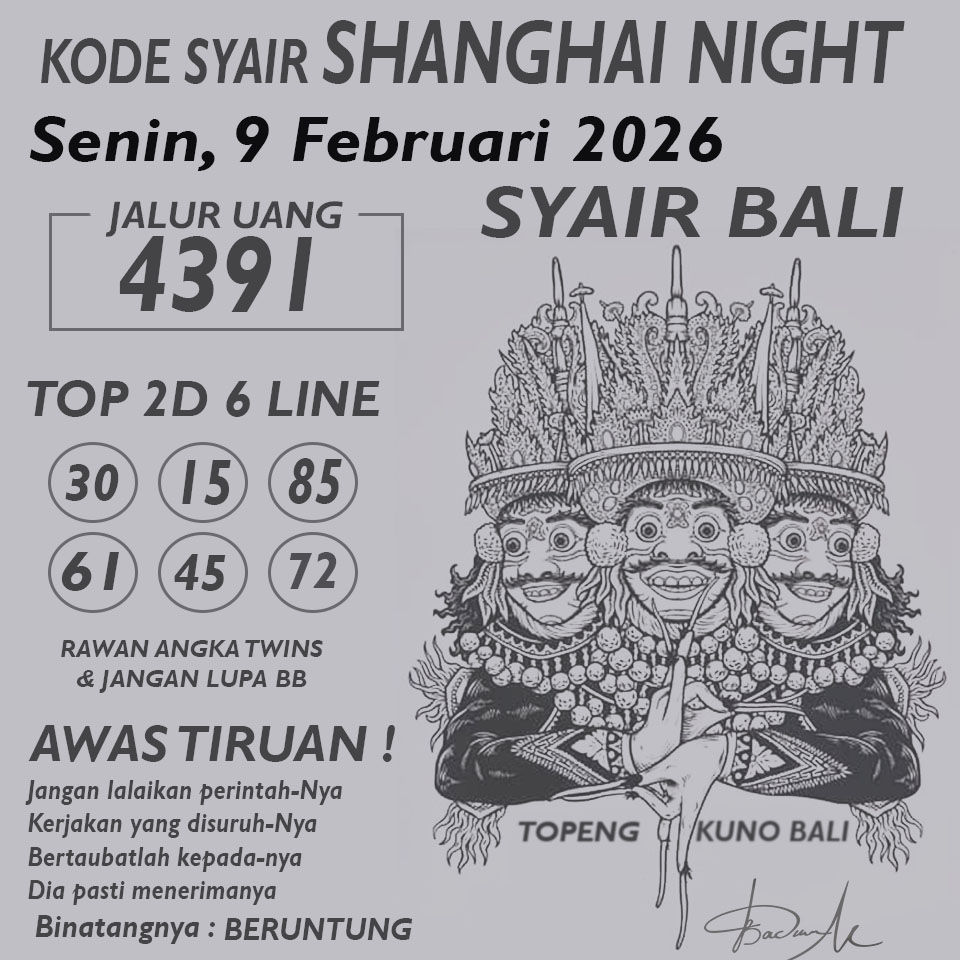 KODE SYAIR SHANGHAI NIGHT
Senin, 9 Februari 2026
SYAIR BALI
JALUR UANG
4391
TOP 2D 6 LINE
30 15 85
61 45 72
RAWAN ANGKA TWINS
& JANGAN LUPA BB
AWAS TIRUAN !
Jangan lalaikan perintah-Nya
Kerjakan yang disuruh-Nya
Bertaubatlah kepada-nya
Dia pasti menerimanya
Binatangnya : BERUNTUNG
TOPENG KUNO BALI